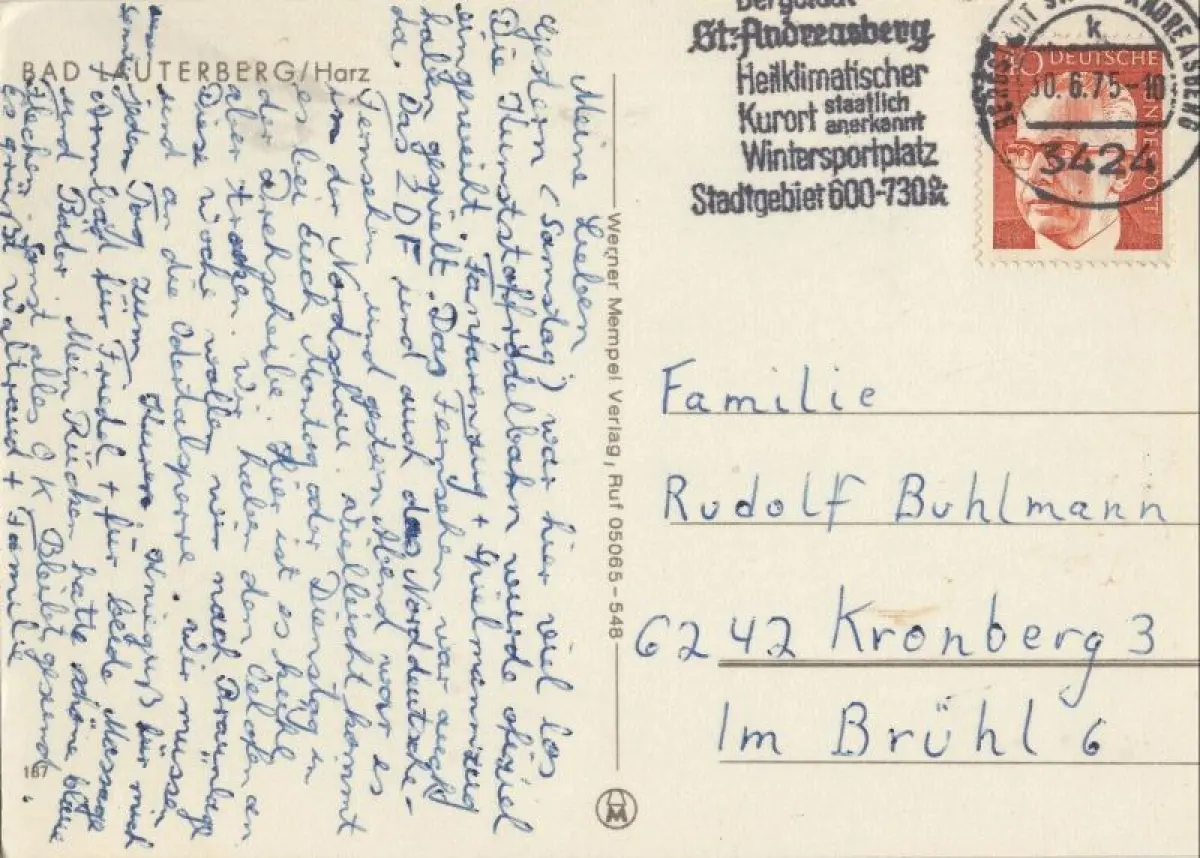 BAD LAUTERBERG/Harz
Meine Lieben
Gestern (Samstag) war hier viel los
Die Kunststoffrodelbahn wurde offiziel
eingeweiht. Fanfarenzug + Spielmannszug
haben gespielt. Das Fernsehen war auch
da. Das ZDF und auch das Norddeutsche-
Fernsehen und gestern Abend war es
in der Nordschau. Vielleicht kommt
es bei Euch Montag oder Dienstag in
der Drehscheibe. Hier ist es kühl
aber trocken. Wir haben den Ofen an
Diese Woche wollen wir nach Braunlage
und an die Odertalsperre. Wir müssen
jeden Tag zum Kuren Knieguß für mich
+ Armbad für Friedel + für beide Massage
und Bäder. Mein Rücken hatte schöne blaue
Flecken. Sonst alles O K Bleibt gesund
es grüßt Waltraud + Familie
187
Werner Mempel Verlag, Ruf 05065-548
M
Bergstadt
St. Andreasberg
Heilklimatischer
Kurort staatlich
anerkannt
Wintersportplatz
Stadtgebiet 600-730
ST. ANDREASBERG
k
30.6.75-10
3424
DEUTSCHE
Familie
Rudolf Buhlmann
6242 Kronberg 3
Im Brühl 6